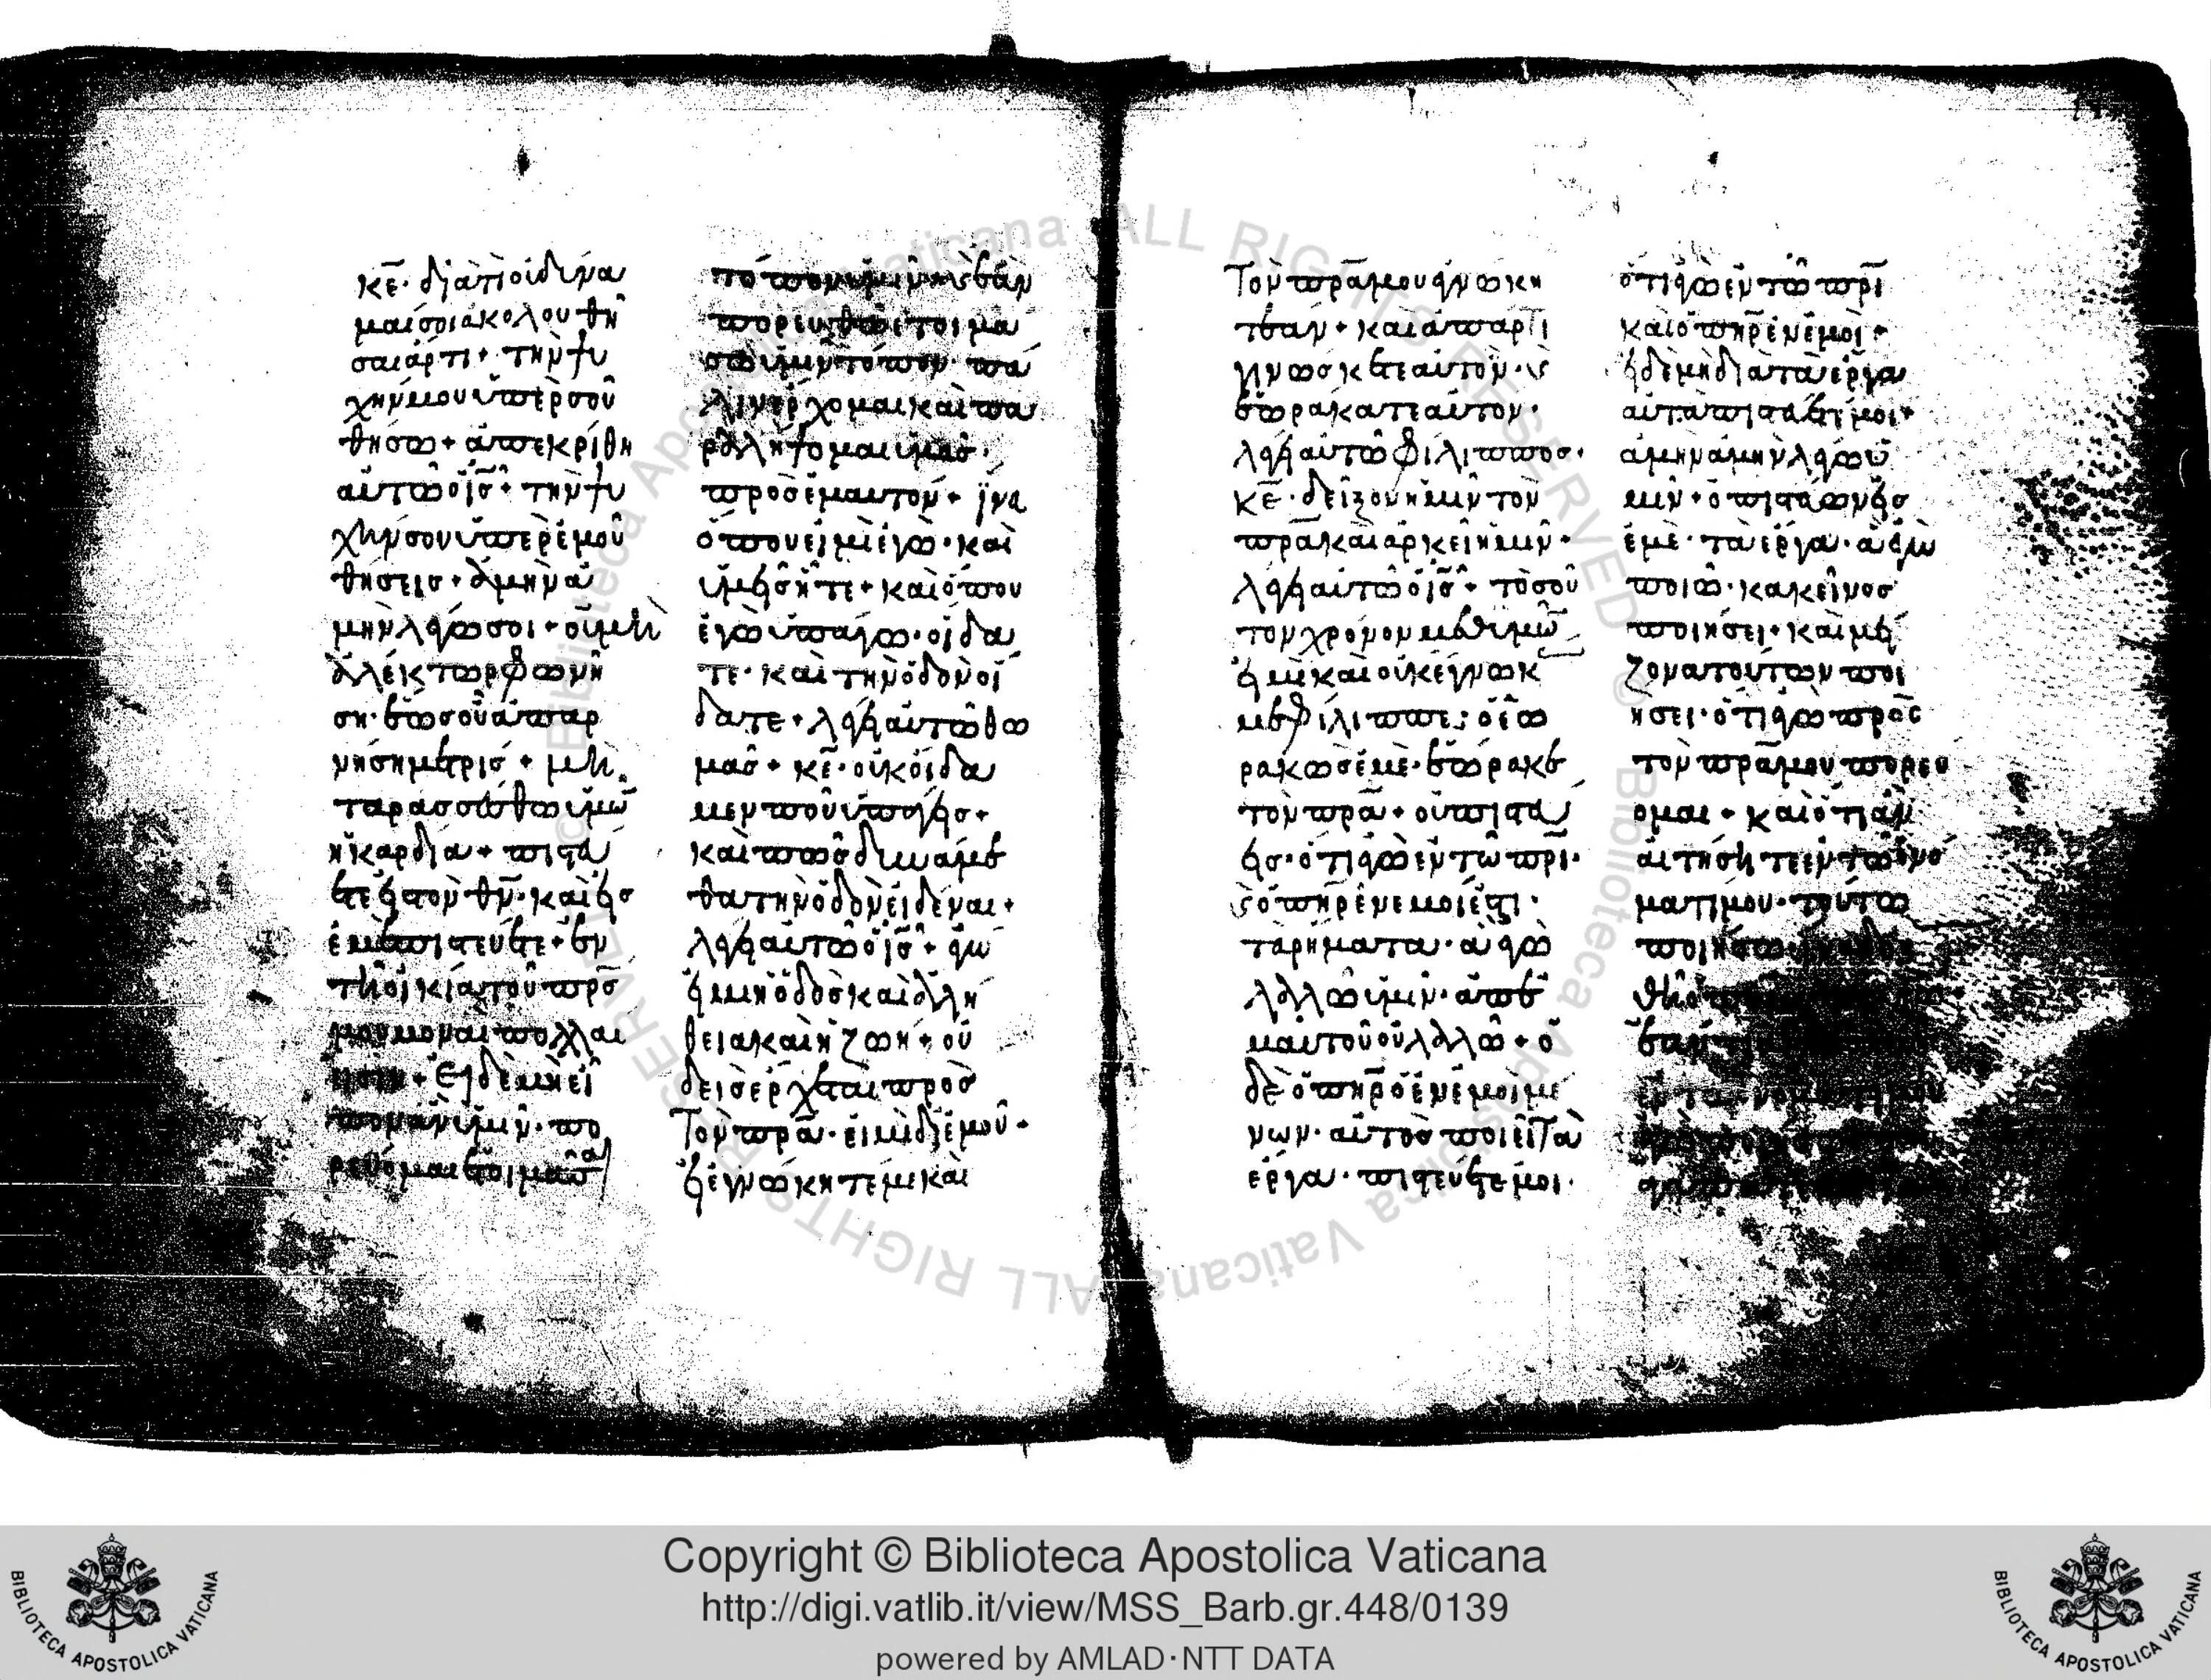 κε̄· διατὶ οὐ δύνα
μαί σοι ἀκολουθῆ
σαι ἄρτι + τὴν ψυ
χήν μου ὑπὲρ σοῦ
θήσω + ἀπεκρίθη
αὐτῶ ὁ ις̄ + τὴν ψυ
χήν σου ὑπὲρ ἐμοῦ
θήσεις + ἀμὴν ἀ
μὴν λέγω σοι + οὐ μὴ
ἀλέκτωρ φωνή
ση· ἕως οὗ ἀπαρ
νήση με τρίς + μὴ
ταρασσέσθω ὑμῶ̄
ἡ καρδία + πιστεύ
ετε εἰς τὸν θν̄· καὶ εἰς
ἐμὲ πιστεύετε + ἐν
τῆ οἰκία τοῦ πρς̄
μου μοναὶ πολλαὶ
εἰσὶν + εἰ δὲ μὴ εἶ
πον ἂν ὑμῖν· πο
ρεύομαι ἑτοιμάσαι
τόπον ὑμῖν κ̀ ἐὰν
πορευθῶ ἑτοιμά
σω ὑμῖν τόπον· πά
λιν ἔρχομαι καὶ πα
ραλήψομαι ὑμᾶς·
πρὸς ἐμαυτόν + ἵνα
ὅπου εἰμὶ ἐγὼ· καὶ
ὑμεῖς ἦτε + καὶ ὅπου
ἐγὼ ὑπάγω· οἴδα
τε· καὶ τὴν ὁδὸν οἴ
δατε + λέγει αὐτῶ θω
μᾶς + κε̄· οὐκ οἴδα
μεν ποῦ ὑπάγεις +
καὶ πῶς δυνάμε
θα τὴν ὁδὸν εἰδέναι +
λέγει αὐτῶ ὁ ις̄ + ἐγώ
εἰμι ἡ ὁδὸς καὶ ἡ ἀλή
θεια καὶ ἡ ζωή + οὐ
δεὶς ἔρχεται πρὸς
Τὸν πρᾱ· εἰ μὴ δι ἐμοῦ·
εἰ ἐγνώκητέ με καὶ
Τὸν πρᾱ μου ἐγνώκη
τε ἂν + καὶ ἀπάρτι
γινώσκετε αὐτὸν· κ̀
ἑωράκατε αὐτον·
λέγει αὐτῶ φίλιππος·
κε̄· δεῖξον ἡμῖν τὸν
πρᾱ καὶ ἀρκεῖ ἡμῖν·
λέγει αὐτῶ ὁ ις̄ + τοσοῦ
τον χρόνον μεθ ὑμῶ̄
εἰμὶ καὶ οὐκ ἔγνωκ
με φίλιππε; ὁ ἑω
ρακὼς ἐμὲ· ἑώρακε
τὸν πρᾱ + οὐ πιστεύ
εις· ὅτι ἐγὼ ἐν τῶ πρι̅·
κ̀ ὁ πηρ̅ ἐν ἐμοί ἐστι·
τὰ ρήματα· ἃ ἐγὼ
λαλῶ ὑμῖν· ἀπ ἐ
μαυτοῦ οὐ λαλῶ + ὁ
δὲ ὁ πηρ̅ ὁ ἐν ἐμοὶ μέ
νων· αὐτὸς ποιεῖ Τὰ
έργα· πιστεύετε μοι·
ὅτι ἐγὼ ἐν τῶ πρι̅
καὶ ὁ πηρ̅ ἐν ἐμοὶ +
εἰ δὲ μὴ διὰ τὰ ἔργα
αὐτὰ πιστεύετέ μοι +
ἀμὴν ἀμὴν λέγω ὑ
μῖν + ὁ πιστεύων εἰς
ἐμὲ· τὰ ἔργα· ἃ ἐγὼ
ποιῶ· κακεῖνος
ποιήσει + καὶ μεί
ζονα τούτων ποι
ήσει· ὅτι ἐγὼ πρὸς
τὸν πρᾱ μου πορεύ
ομαι + καὶ ὅτι ἂν
αἰτήσητε ἐν τῶ ὀνό
ματί μου· τοῦτο
ποιήσω
ἐὰν